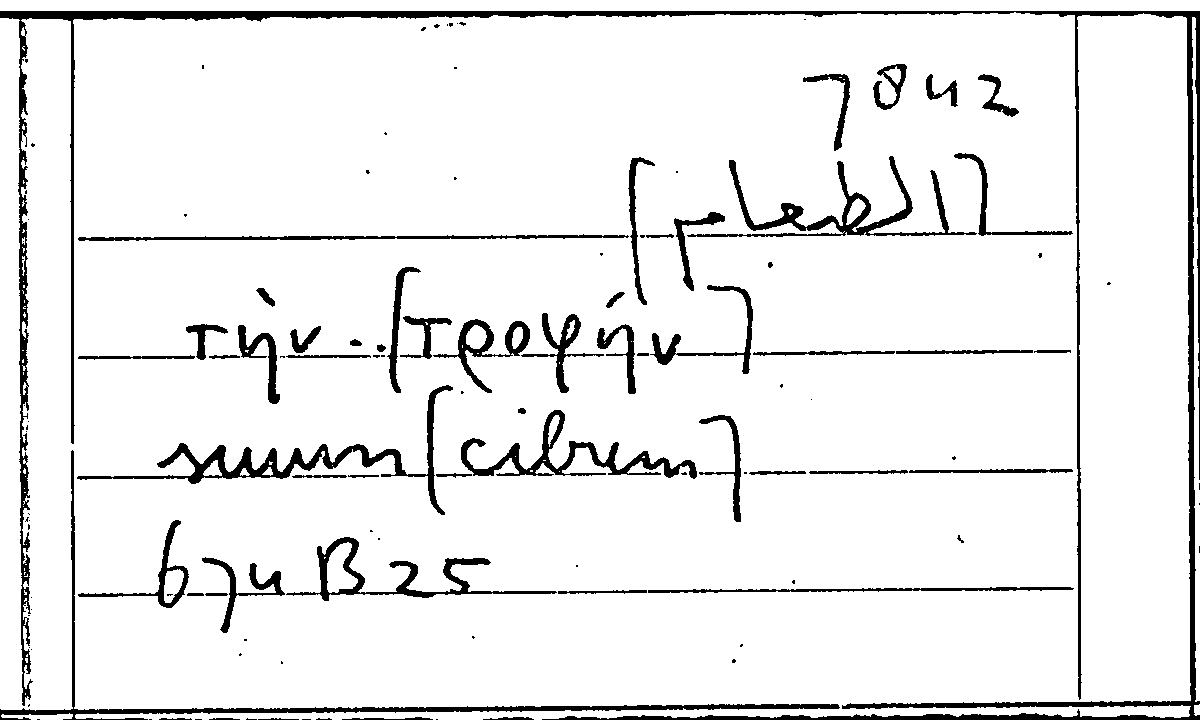 7842
τὴν .. [τροφήν]
suum [cibum]
674 B 25